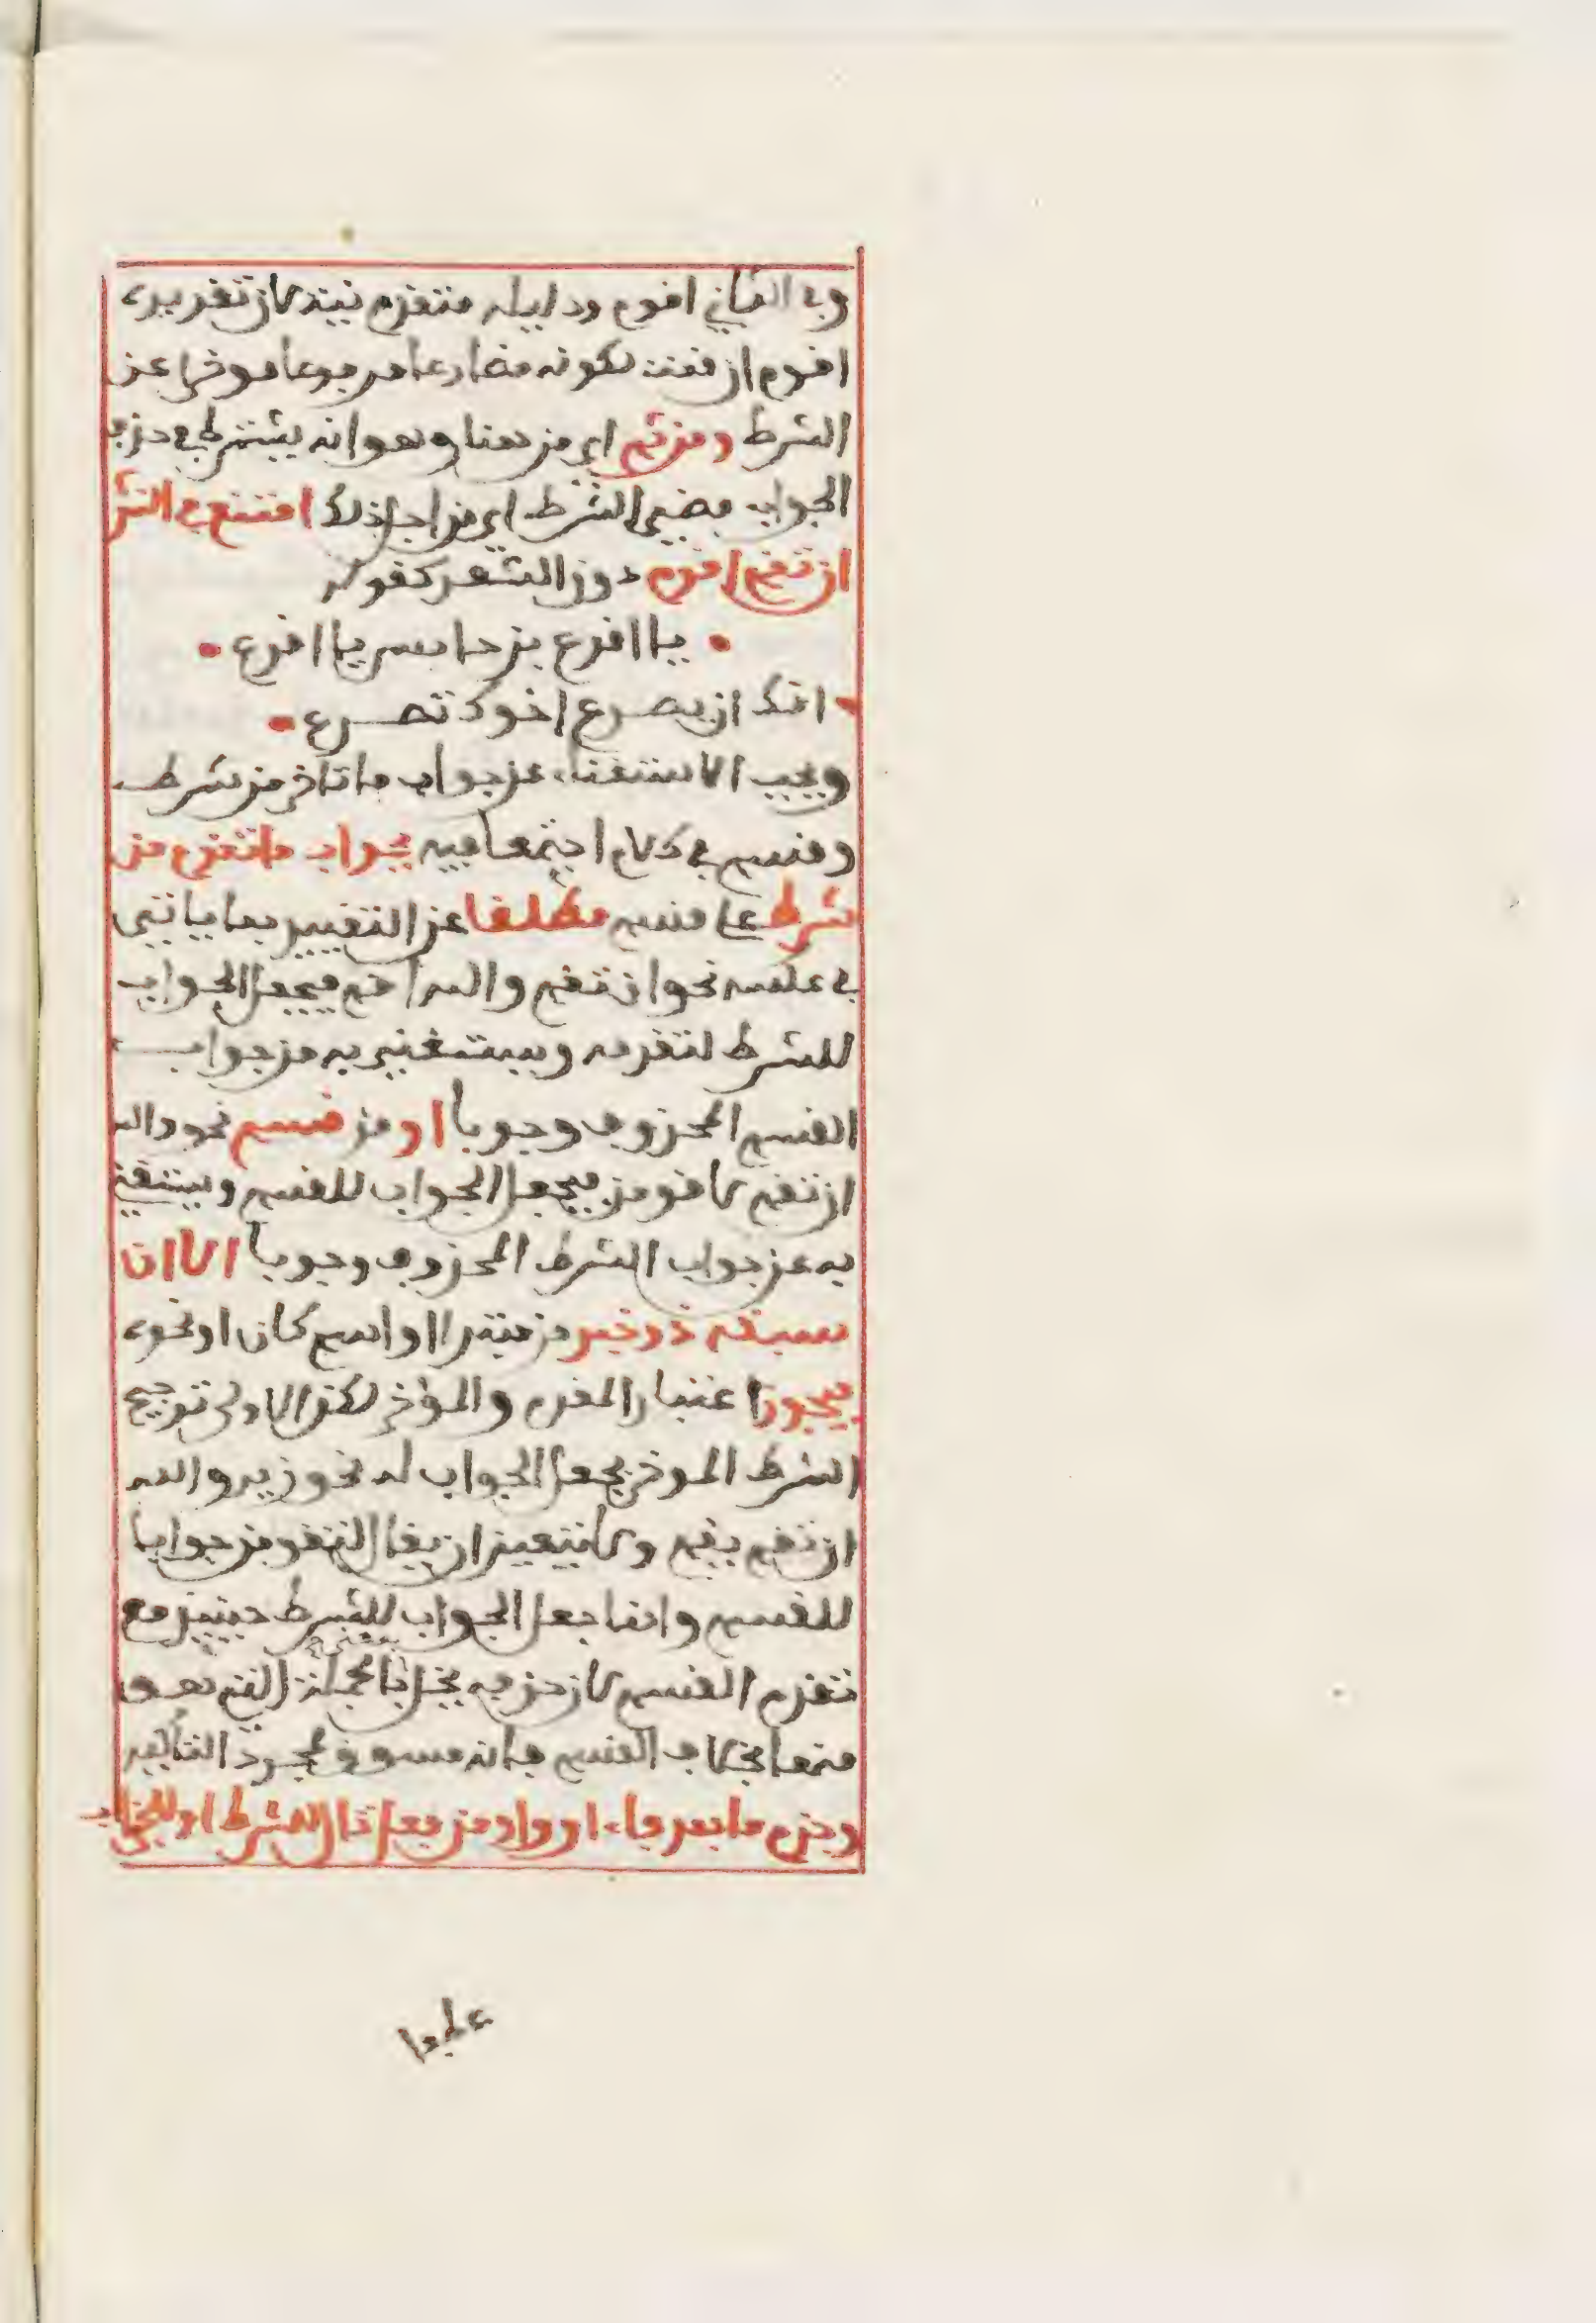 وفي الثاني اقوم ودليله متقدم نية لان تقديره
اقوم ان قمت لكونه مضارعا مرفوعا موخرا عن
الشرط ومن ثم اي من هنا وهو انه يشترط في حذف
الجواب مضي الشرط اي من اجل ذلك امتنع في النثر
ان تقم اقوم دون الشعر كقوله
يا اقرع بن حابس يا اقرع
انك ان يصرع اخوك تصرع
ويجب الاستغناء عن جواب ما تاخر من شرط
وقسم في كلام اجتمعا فيه بجواب ما تقدم من
شرط على قسم مطلقا عن التقييد بما ياتي
في عكسه نحو ان تقم والله اقم فيجعل الجواب
للشرط لتقدمه ويستغنى به من جواب
القسم المحذوف وجوبا او من قسم نحو والله
ان تقم لاقومن فيجعل الجواب للقسم ويستغنى
به عن جواب الشرط المحذوف وجوبا الا ان
سبقه ذو خبر من مبتدا او اسم كان او نحوه
فيجوز اعتبار المقدم والمؤخر لكن الاولى ترجيح
الشرط الموخر بجعل الجواب له نحو زيد والله
ان تقم يقم ولا يتعين ان يقال لتقومن جوابا
للقسم وانما جعل الجواب للشرط حينيذ مع
تقدم القسم لان حذفه يخل بمعنى الجملة التي هو
منها بخلاف القسم فانه مسوق لمجرد التأكيد
وجزم ما بعد فاء او واو من فعل تال للشرط او للجواب
عطفا